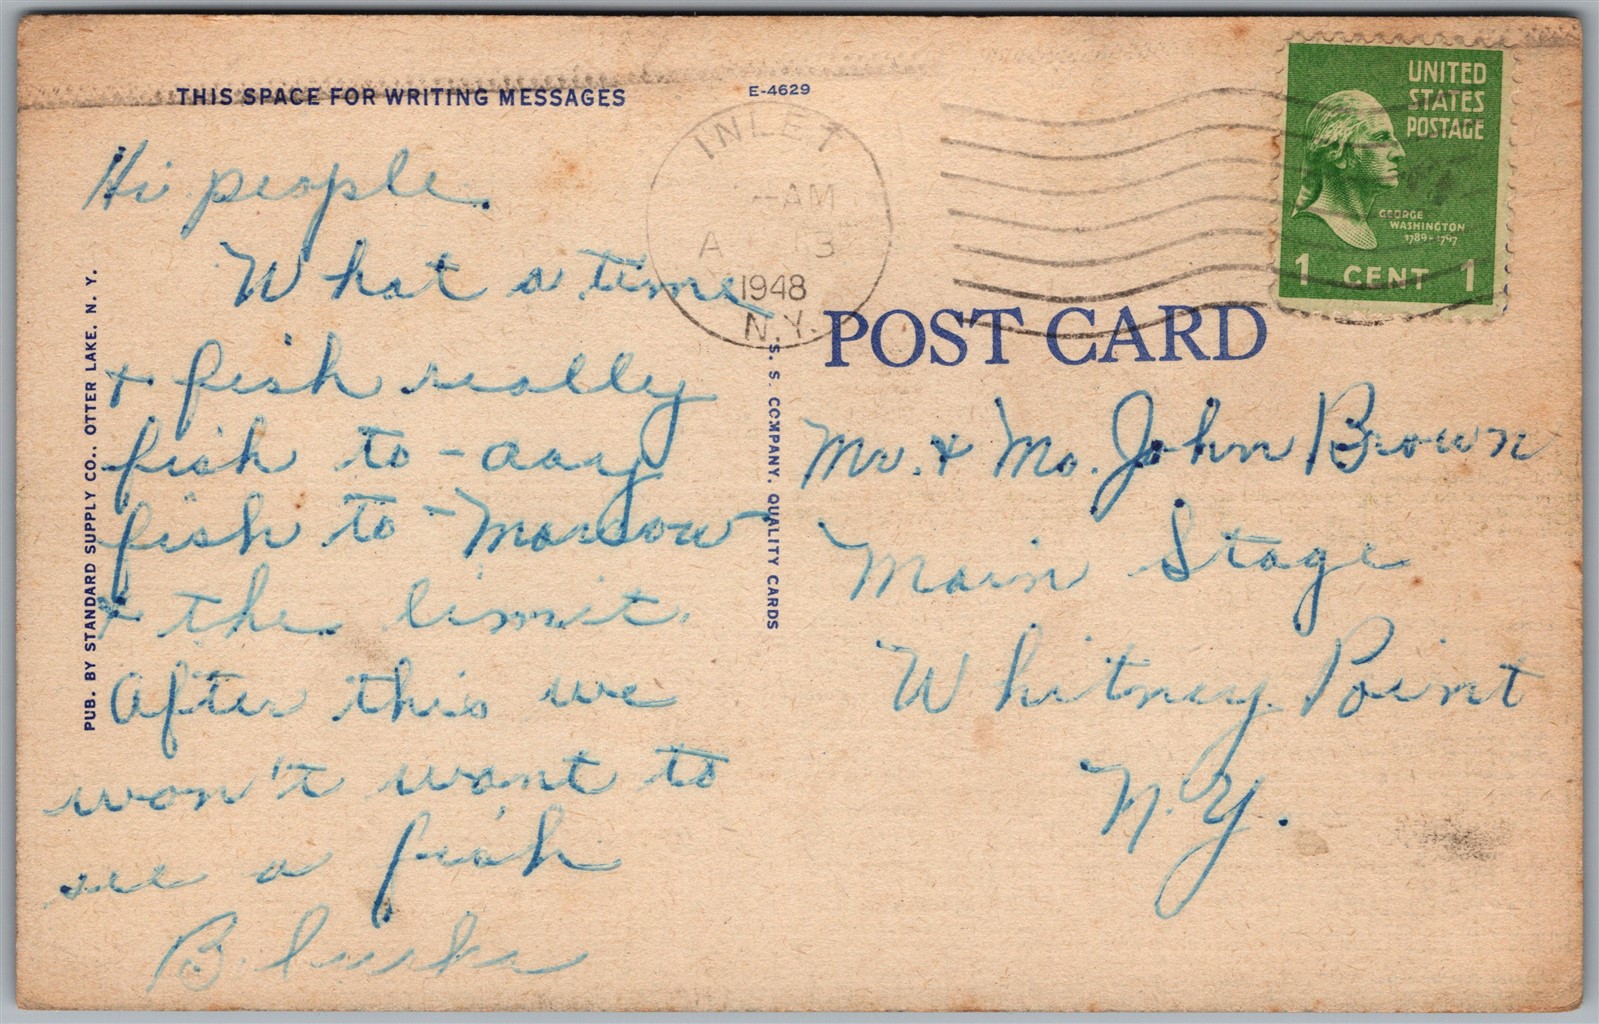 THIS SPACE FOR WRITING MESSAGES
E-4629
Hi people.
What a time
+ fish really
fish to-day
fish to-morrow
+ the limit.
After this we
won't want to
see a fish
B.
PUB. BY STANDARD SUPPLY CO., OTTER LAKE, N. Y.
S. S. COMPANY, QUALITY CARDS
INLET
AM
A 13
1948
N.Y.
UNITED
STATES
POSTAGE
GEORGE
WASHINGTON
1789-1797
1 CENT 1
POST CARD
Mr. + Mrs. John Brown
Main Stage
Whitney Point
N.Y.